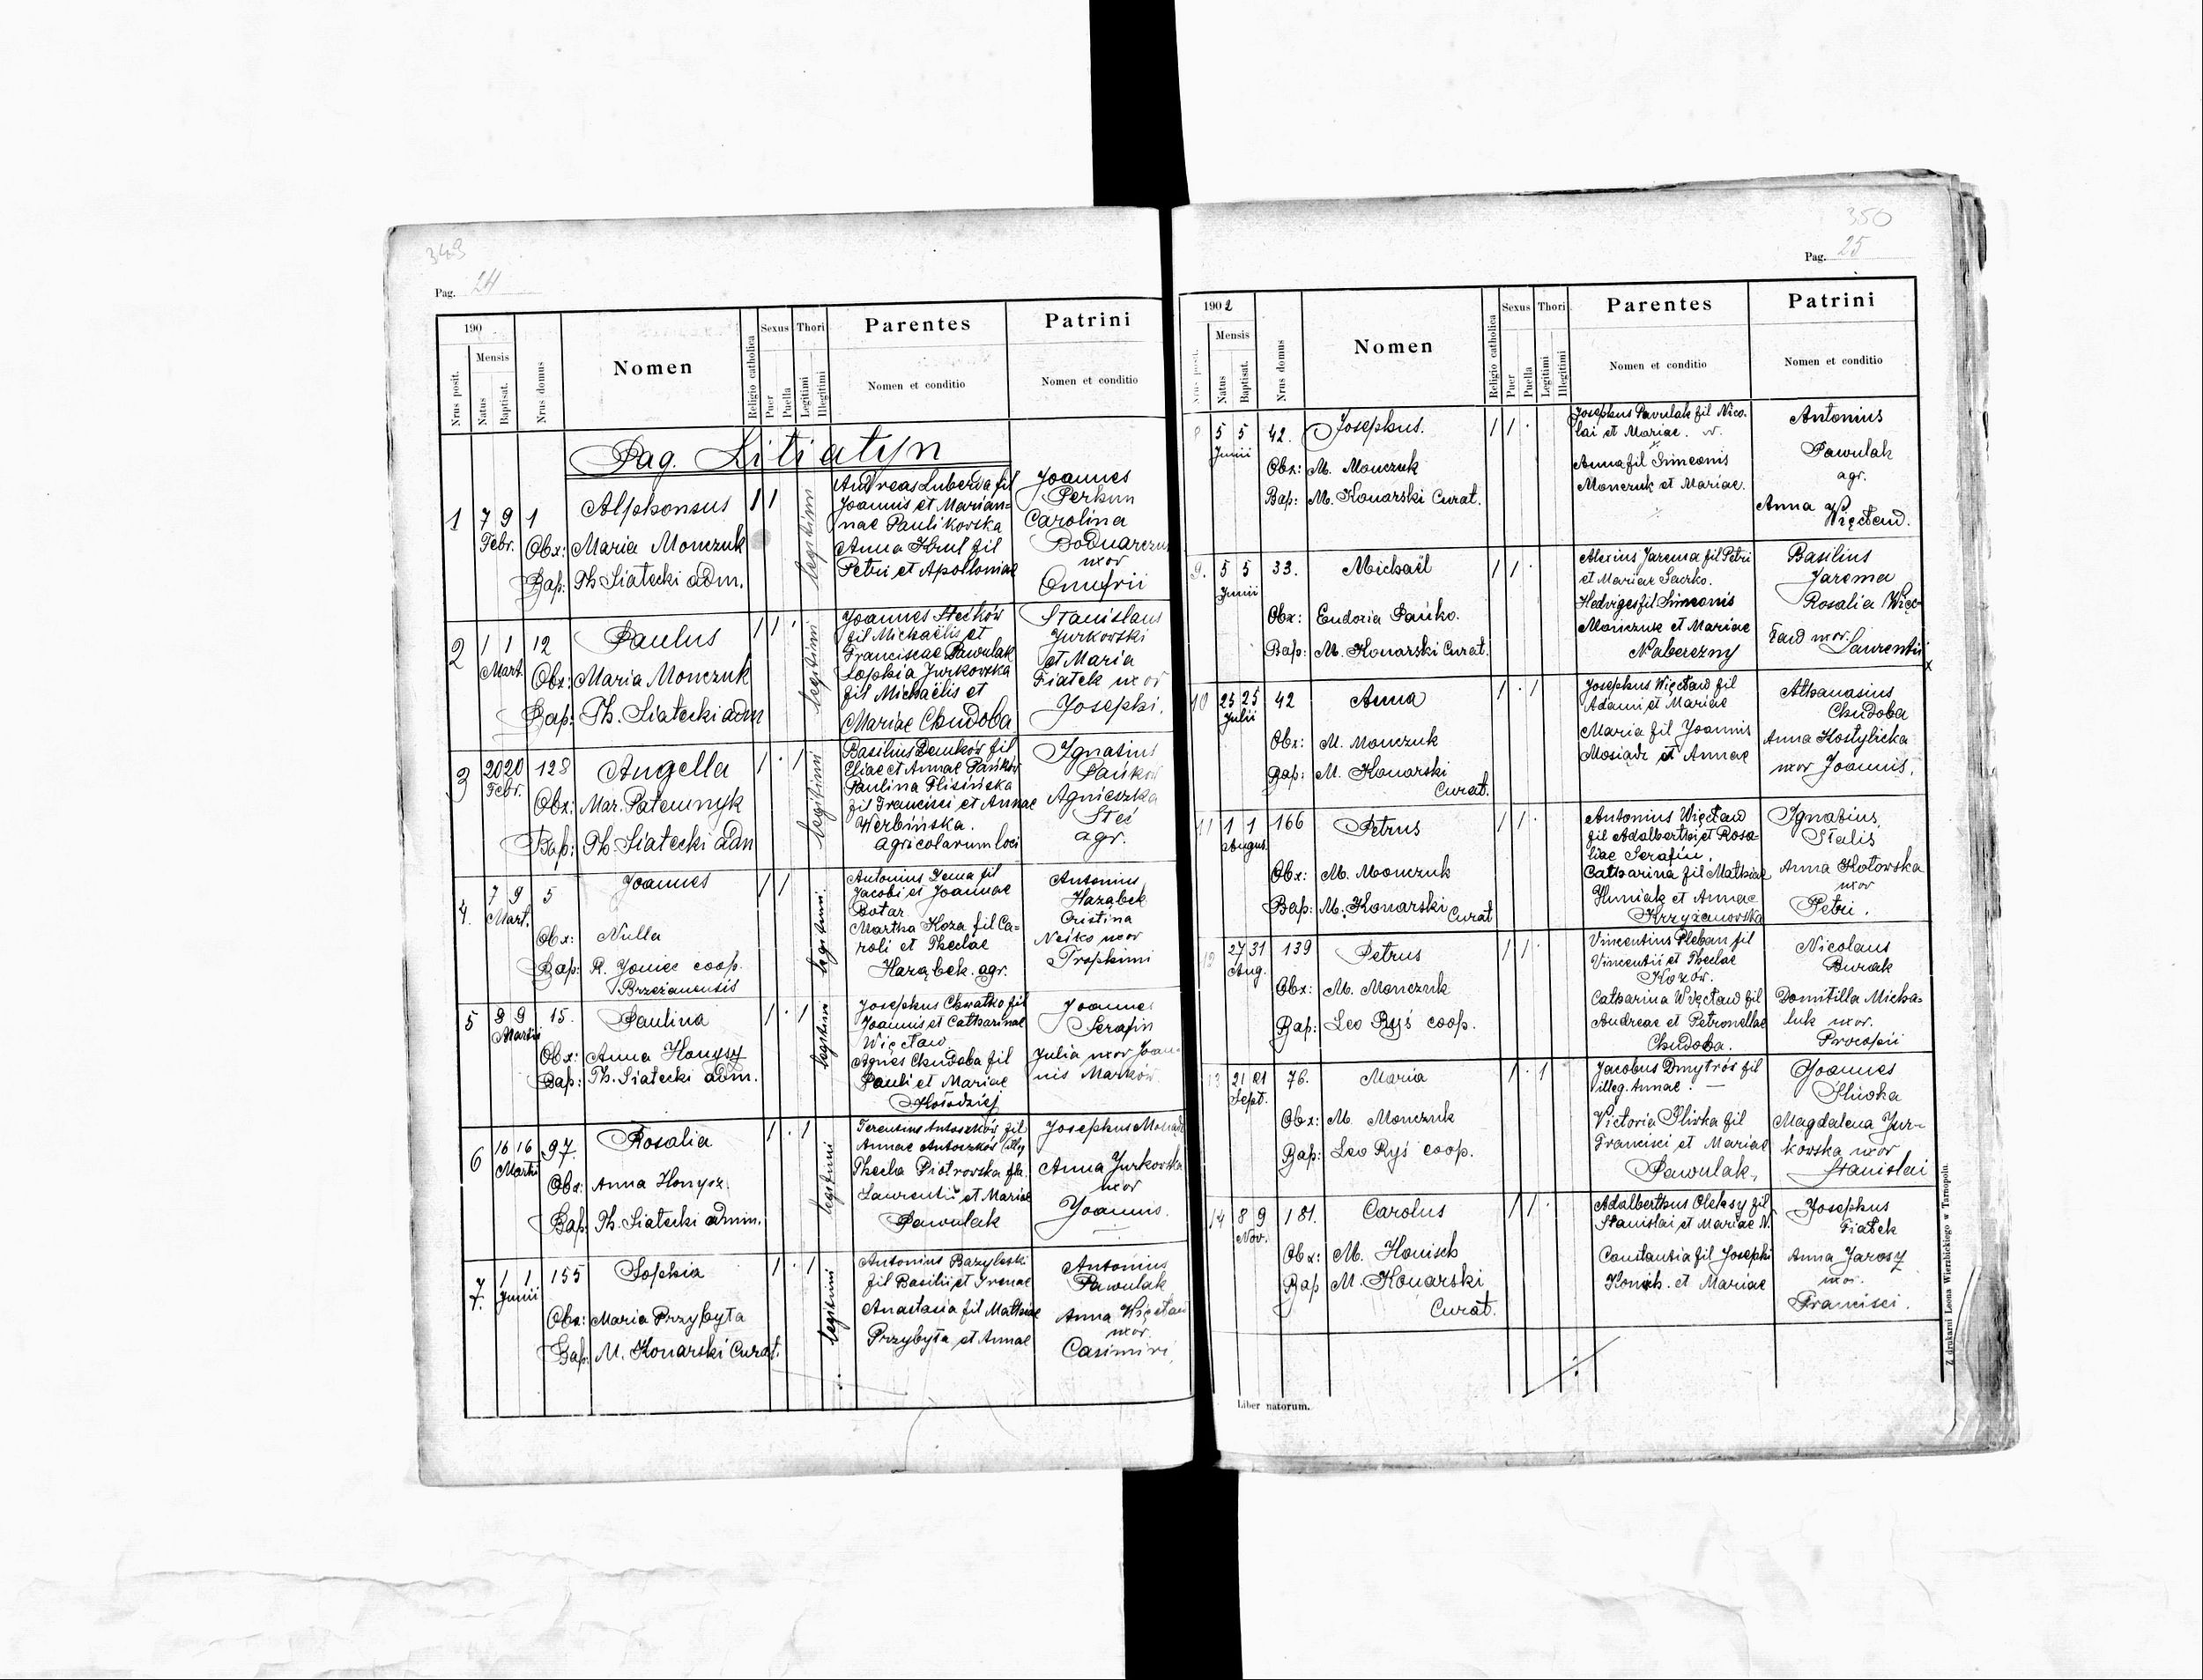 349
Pag. 24
190
Nrus posit.
Mensis
Natus
Baptisat.
Nrus domus
Nomen
Religio catholica
Sexus
Puer
Puella
Thori
Legitimi
Illegitimi
Parentes
Nomen et conditio
Patrini
Nomen et conditio
Pag. Litiatyn
1
7 9
Febr.
1
Alphonsus
Obx: Maria Monczuk
Bap: Th. Siatecki adm.
legitimi
Andreas Luberda fil
Joannis et Marian-
nae Paulikovska
Anna Krul fil
Petri et Apolloniae
Joannes
Perkun
Carolina
uxor
Onufrii
2
1 1
Mart.
12
Paulus
Obx: Maria Monczuk
Bap: Th. Siatecki adm
legitimi
Joannes Stećków
fil Michaëlis et
Franciscae Pawulak
Sophia Jurkovska
fil Michaëlis et
Mariae Chudoba
Stanislaus
Jurkovski
et Maria
Fiałek uxor
Josephi.
3
20 20
Febr.
128
Angella
Obx: Mar. Patemnyk
Bap: Th. Siatecki adm
legitimi
Basilius Demków fil
Eliae et Annae Pańków
Paulina Flisińska
fil Francisci et Annae
Werbińska.
agricolarum loci
Ignatius
Pańków
Agnieszka
Steś
agr.
4.
7 9
Mart.
5
Joannes
Obx: Nulla
Bap: R. Joniec coop.
Brzeżanensis
legitimi
Antonius Dema fil
Jacobi et Joannae
Botar
Martha Koza fil Ca=
roli et Theclae
Harąbek. agr.
Antonius
Harąbek
Cristina
Neiko uxor
Trophimi
5
9 9
Martii
15.
Paulina
Obx: Anna Honysz
Bap: Th. Siatecki adm.
legitimi
Josephus Chwałko fil
Joannis et Catharinae
Więcław
Agnes Chudoba fil
Pauli et Mariae
Hołodziej
Joannes
Serafin
Julia uxor Joan-
nis Marków
6
16 16
Martii
97.
Rosalia
Obx: Anna Honysz
Bap: Th. Siatecki admin.
legitimi
Terentius Antoszków fil
Annae Antoszków illeg
Thecla Piotrovska fil.
Laurentii et Mariae
Pawulak
Josephus
Anna Jurkovska
uxor
Joannis.
7.
1 1
Junii
155
Sophia
Obx: Maria Przybyła
Bap: M. Konarski Curat.
legitimi
Antonius Bazyleski
fil Basilii et Irenae
Anastasia fil Mathiae
Przybyła et Annae
Antonius
Pawulak
Anna Więcław
uxor
Casimiri
350
Pag. 25
1902
Nrus posit.
Mensis
Natus
Baptisat.
Nrus domus
Nomen
Religio catholica
Sexus
Puer
Puella
Thori
Legitimi
Illegitimi
Parentes
Nomen et conditio
Patrini
Nomen et conditio
8
5 5
Junii
42.
Josephus.
Obx: M. Monczuk
Bap: M. Konarski Curat.
Josephus Pawulak fil Nico.
lai et Mariae. N.
Anna fil Simeonis
Monczuk et Mariae.
Antonius
Pawulak
agr.
Anna
Więcław.
9.
5 5
Junii
33.
Michaël
Obx: Eudoxia Pańko.
Bap: M. Konarski Curat.
Alexius Jarema fil Petri
et Mariae Saczko.
Hedviges fil Simeonis
Monczuk et Mariae
Nabereżny
Basilius
Jarema
Rosalia Więc-
ław uxor. Laurentii
10
25 25
Julii
42
Anna
Obx: M. Monczuk
Bap: M. Konarski
Curat.
Josephus Więcław fil
Adami et Mariae
Maria fil Joannis
Mosiądz et Annae
Athanasius
Chudoba
Anna Kostylicka
uxor Joannis.
11
1 1
August
166
Petrus
Obx: M. Monczuk
Bap: M. Konarski
Curat
Antonius Więcław
fil Adalberthi et Rosa-
liae Serafin.
Catharina fil Mathiae
Huniak et Annae
Krzyżanovska
Ignatius
Stalis
Anna Kotowska
uxor
Petri.
12
27 31
Aug.
139
Petrus
Obx: M. Monczuk
Bap: Leo Ryś coop.
Vincentius Pleban fil
Vincentii et Theclae
Kozów.
Catharina Więcław fil
Andreae et Petronellae
Chudoba.
Nicolaus
Burak
Domitilla Micha-
luk uxor.
Procopii
13
21 21
Sept.
76.
Maria
Obx: M. Monczuk
Bap: Leo Ryś coop.
Jacobus Dmytrós fil
illeg. Annae. —
Victoria Śliwka fil
Francisci et Mariae
Pawulak,
Joannes
Śliwka
Magdalena Jur-
kovska uxor
Stanislai
14
8 9
Nov.
181.
Carolus
Obx: M. Honisch
Bap M. Konarski
Curat.
Adalberthus Oleksy fil
Stanislai et Mariae N.
Constantia fil Josephi
et Mariae
Josephus
Fiałek
Anna Jarosz
uxor.
Francisci.
Liber natorum.
Z drukarni Leona Wierzbickiego w Tarnopolu.